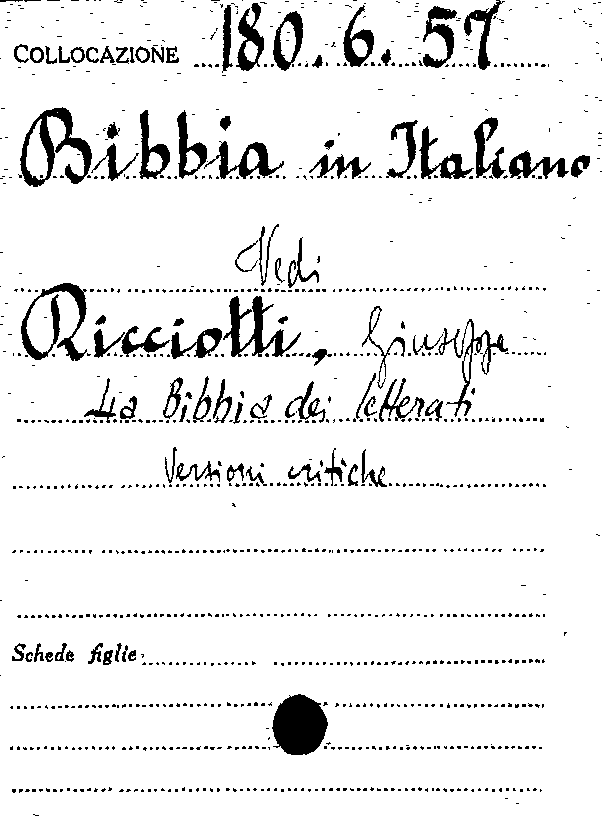 COLLOCAZIONE 180.6.57
Bibbia in Italiano
Vedi
Ricciotti, Giuseppe
La Bibbia dei letterati
Versioni critiche
Schede figlie